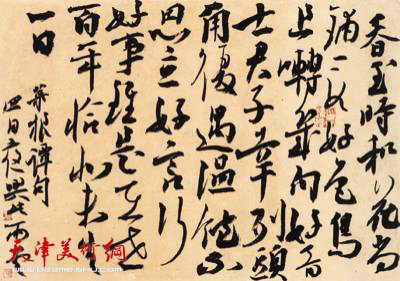 春至時和花尚
鋪一段好色鳥
且囀幾句好音
士君子幸列頭
角復遇溫飽不
思立好言行
好事雖是在世
百年恰似未生
一日
菜根譚句
天津美術網